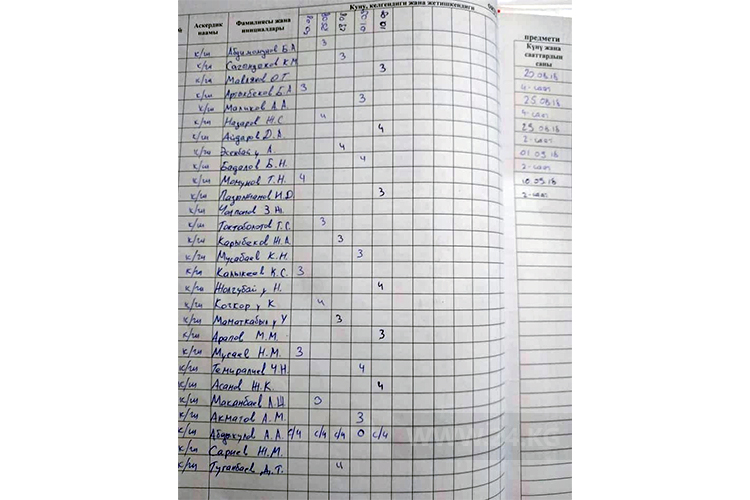 Аскердик наамы Фамилиясы жана инициалдары Күнү, келгендиги жана жетишкендиги
к/ш Абдимомунов Б.А 3
к/ш Сагындыков К.М 3
к/ш Мавлянов О.Т 3
к/ш Арзыбеков Б.А 3
к/ш Маликов А.А. 3
к/ш Назаров Ж.С 4
к/ш Айдаров Д.А. 4
к/ш А. 4
к/ш Бадалов Б.Н. 4
к/ш Момунов Т.Н. 4
к/ш И.Д. 3
к/ш Чолпонов З.Ж.
к/ш Токтоболотов Т.С. 3
к/ш Карыбеков Ж.А. 3
к/ш Мусабаев К.Н. 3
к/ш Калыкеев К.С. 3
к/ш Жолчубай у Н. 4
к/ш Кочкор у К. 4
к/ш Маматкабыл у У 3
к/ш Арапов М.М. 3
к/ш Мусаев Н.М. 3
к/ш Темиралиев Ч.Н. 4
к/ш Асанов Ж.К. 4
к/ш Маканбаев А.Ш. 3
к/ш Акматов А.М. 3
к/ш Абдыкулов А.А. с/ч с/ч с/ч 0 с/ч
к/ш Сариев Ж.М.
к/ш Туганбаев Д.Т. 4
предмети
Күнү жана
сааттардын
саны
20.08.18
4-саат
25.08.18
4-саат
29.08.18
2-саат
01.09.18
2-саат
10.09.18
2-саат
WWW.24.KG